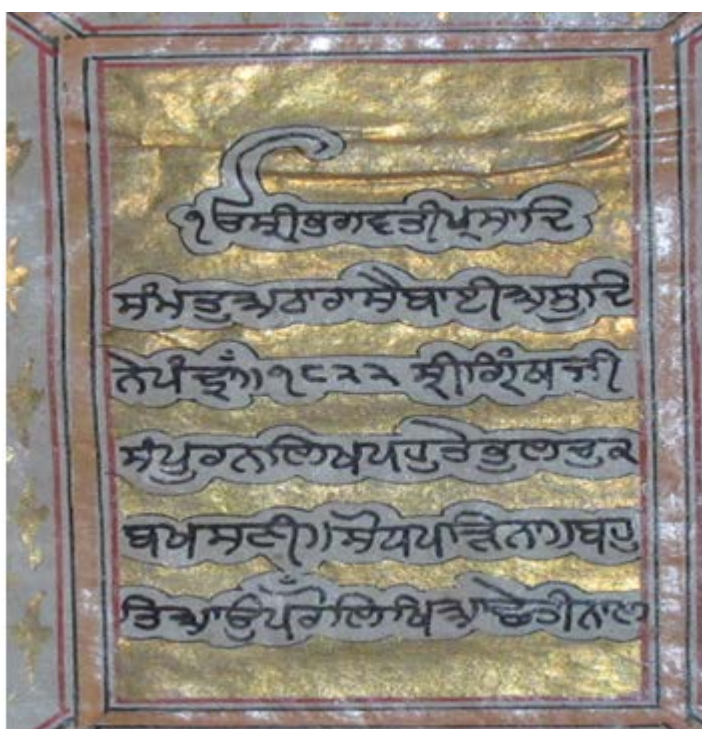 ੴ ਸ੍ਰੀ ਭਗਵਤੀ ਪ੍ਰਸਾਦਿ
ਸੰਮਤੁ ਅਠਾਰਾ ਸੈ ਬਾਈ ਅਸੁ ਦਿ
ਨੇ ਪੰਦ੍ਰਾਂ ੧੮੨੨ ਸ੍ਰੀ ਗ੍ਰਿੰਥ ਜੀ
ਸੰਪੂਰਨ ਲਿਖ ਪਹੁਚੇ ਭੁਲ ਚੁਕ
ਬਖਸਣੀ॥ ਸੋਧ ॥ਬਹੁ
ਤਿਆ ਉਪਰੋਂ ਲਿਖਿਆ ਛੇਤੀ ਨਾਲ